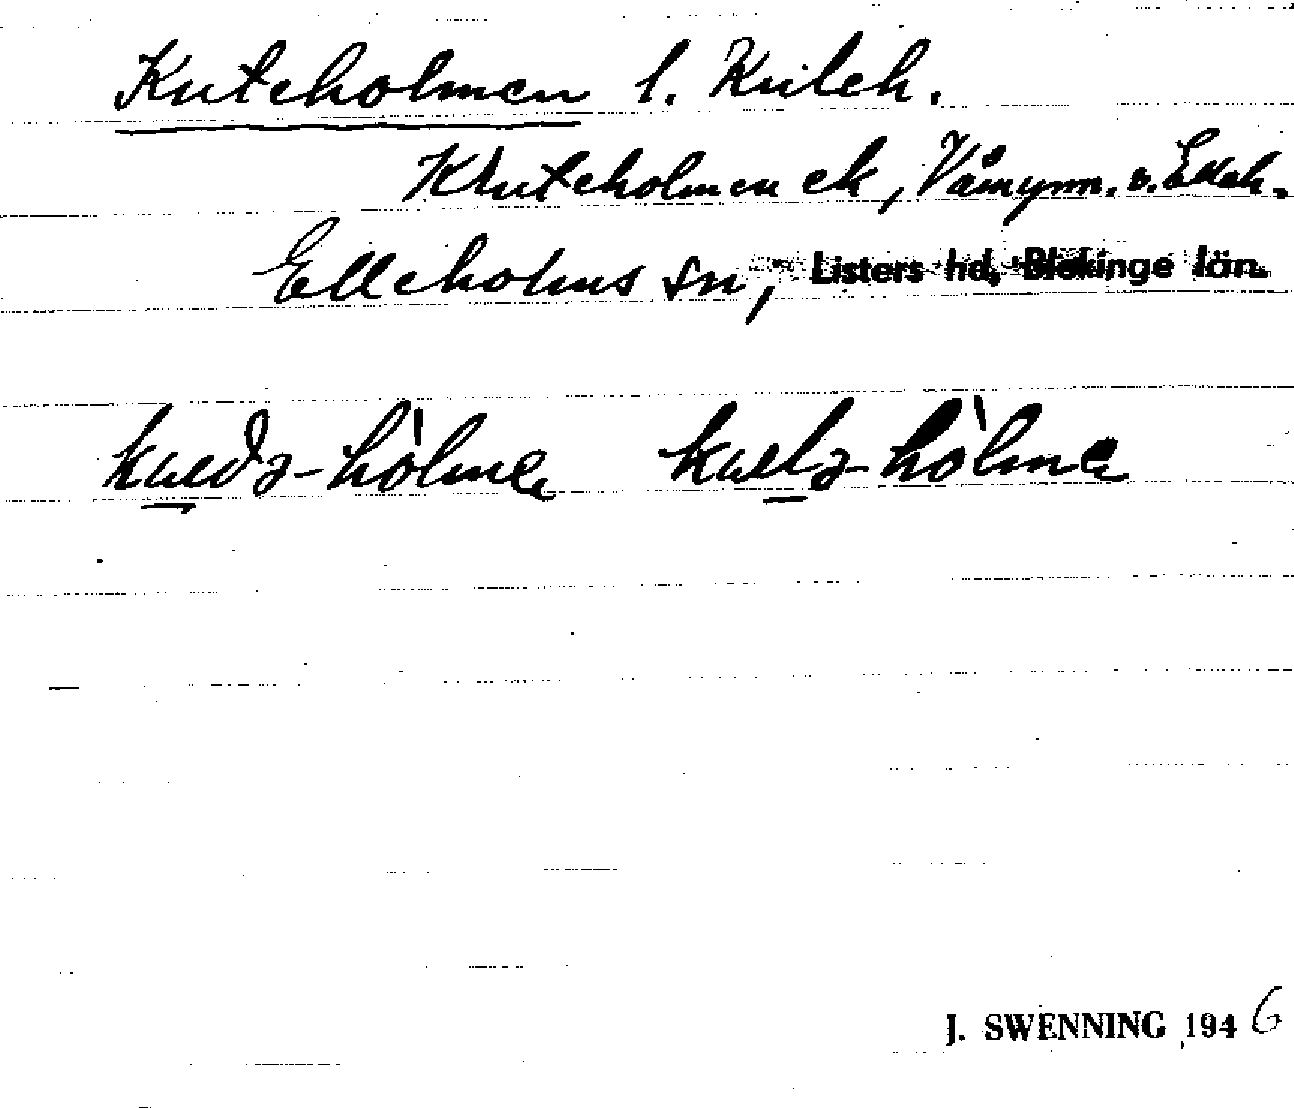 Kuteholmen l. Kuleh.
Kruteholmen ek, Våmynn. v. Elleh.
Elleholms sn, Listers hd, Blekinge län.
kuedə-hòlmen kuetə-hòlmen
J. SWENNING 1946